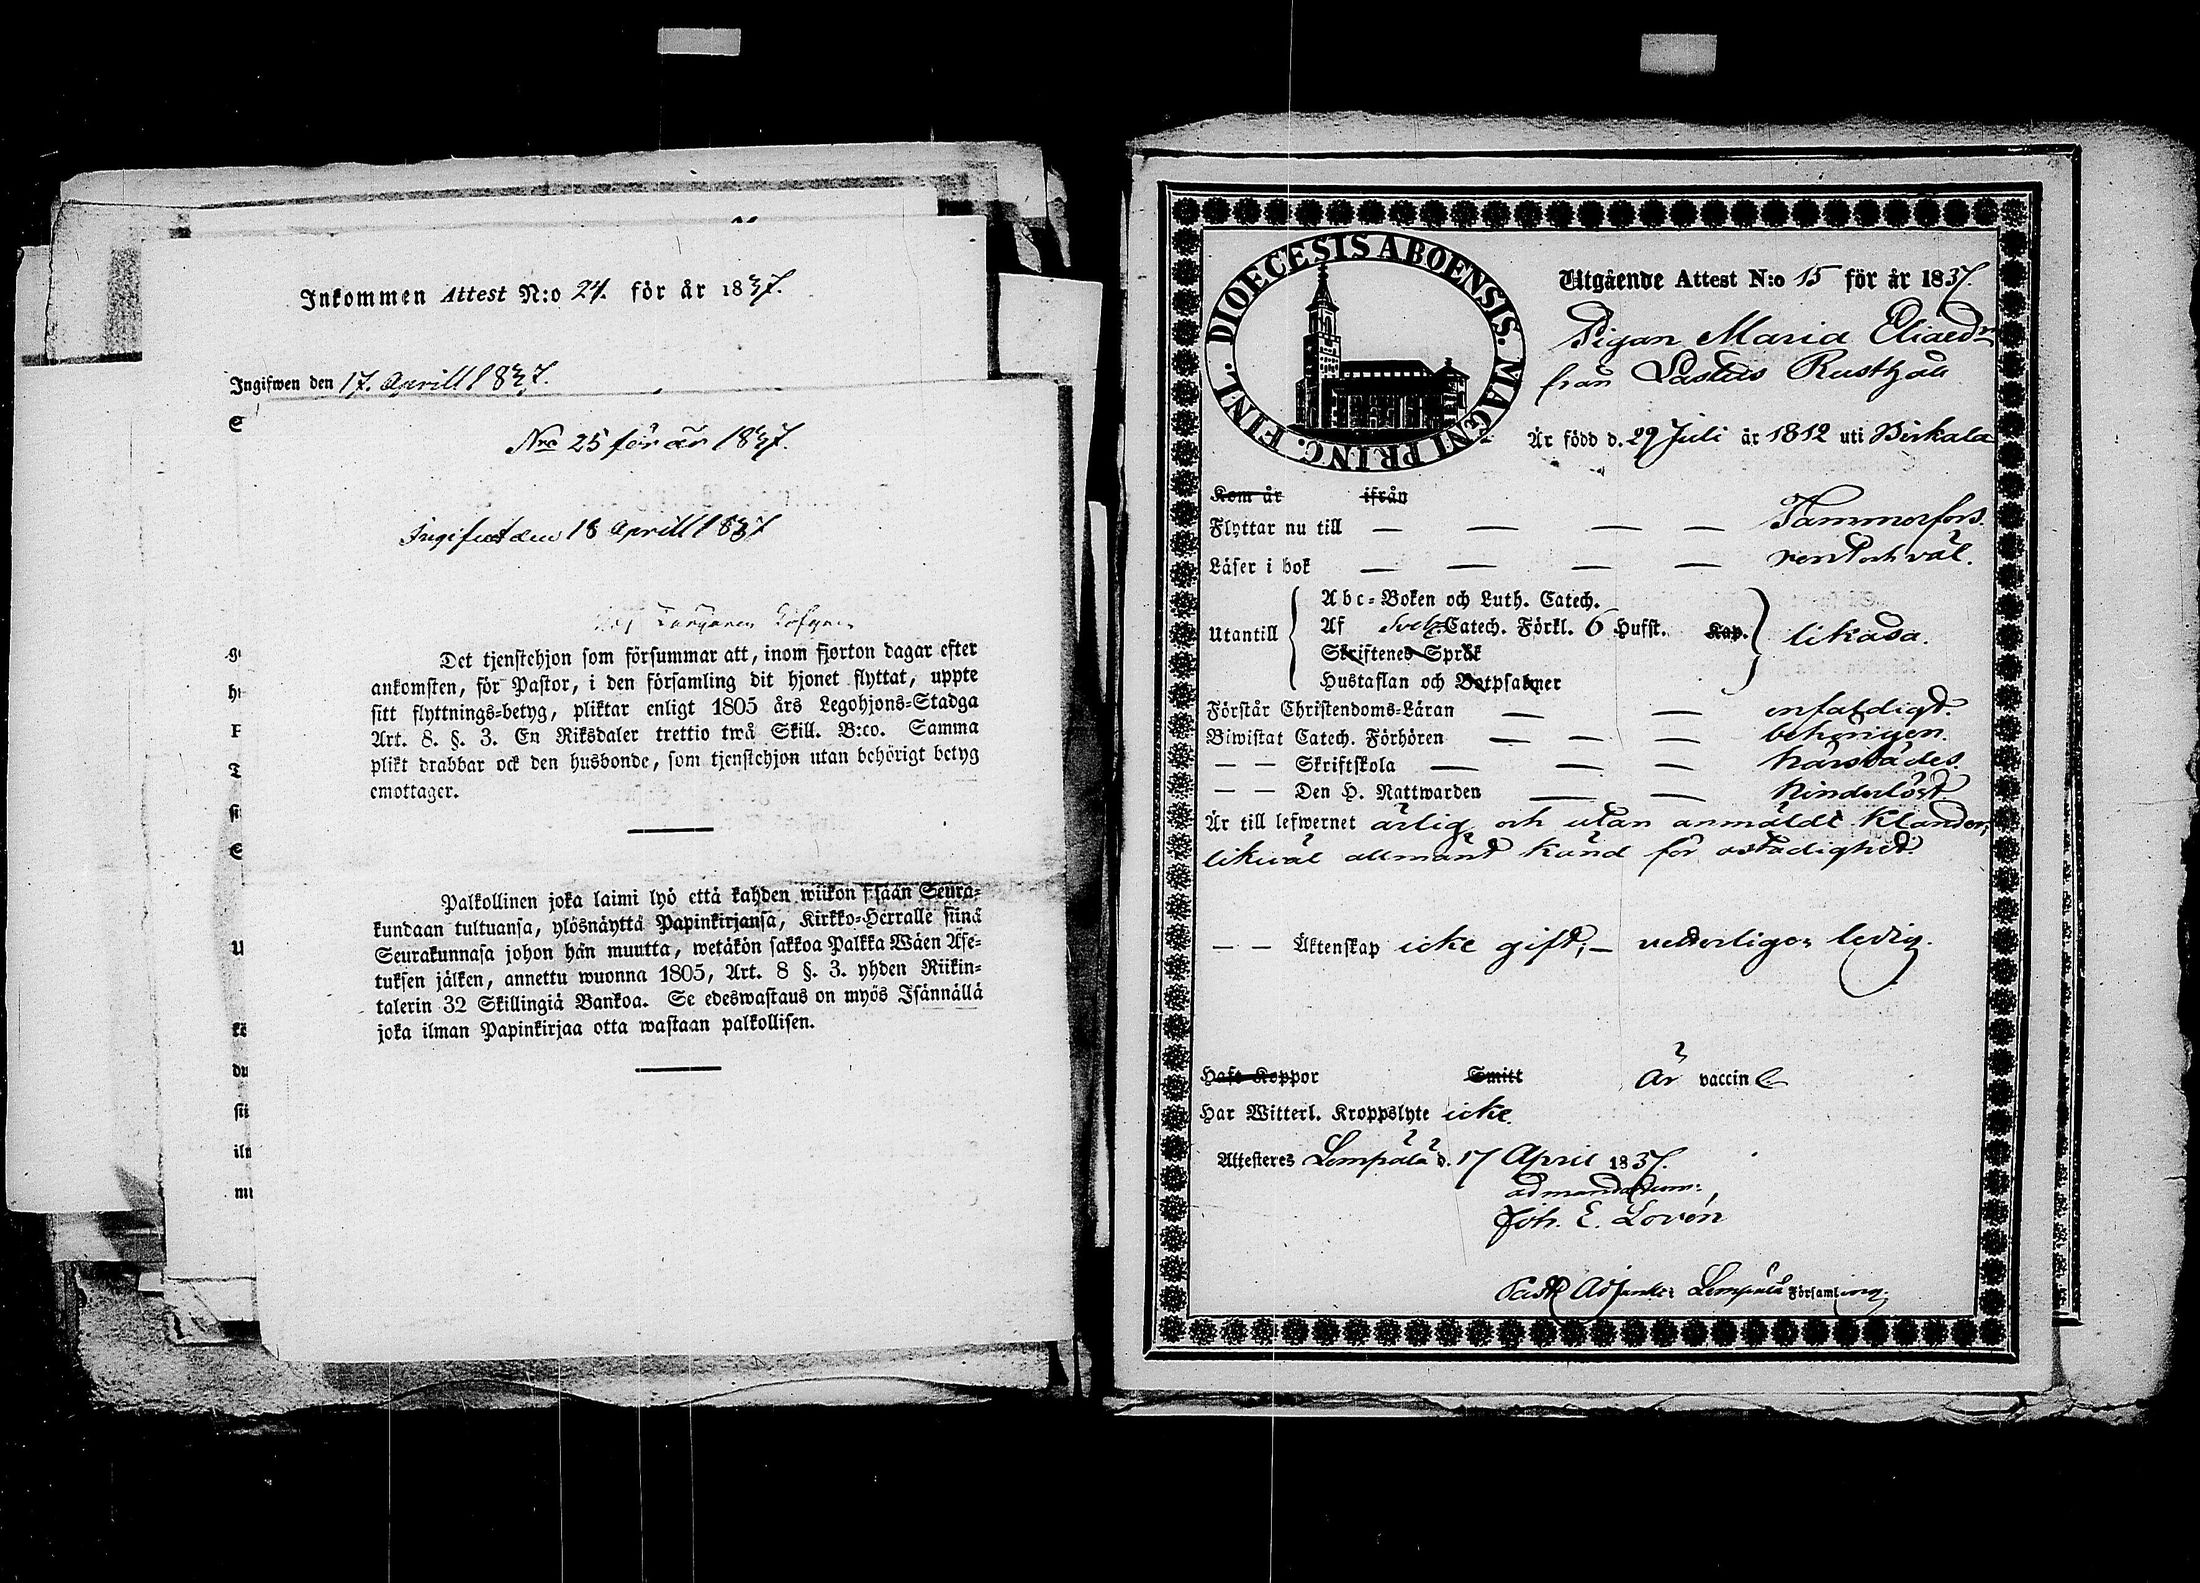 Inkommen Attest N:o 24. för år 1837.
Ingifwen den 17. Aprill 1837.
Nro 25 för år 1837.
Ingifvet den 18 Aprill 1837
Det tjenstehjon som försummar att, inom fjorton dagar efter
ankomsten, för Pastor, i den församling dit hjonet flyttat, uppte
sitt flyttnings=betyg, pliktar enligt 1805 års Legohjons=Stadga
Art. 8. §. 3. En Riksdaler trettio twå Skill. B:co. Samma
plikt drabbar ock den husbonde, som tjenstehjon utan behörigt betyg
emottager.
Palkollinen joka laimi lyö että kahden wiikon sisään Seura=
kundaan tultuansa, ylösnäyttä Papinkirjansa, Kirkko=Herralle siinä
Seurakunnasa johon hän muutta, wetäkön sakkoa Palkka Wäen Ase=
tuksen jälken, annettu wuonna 1805, Art. 8 §. 3. yhden Riikin=
talerin 32 Skillingiä Bankoa. Se edeswastaus on myös Isännällä
joka ilman Papinkirjaa otta wastaan palkollisen.
DIOECESIS ABOENSIS. MAGNI PRINC. FINL.
Utgående Attest N:o 15 för år 1837.
Pigan Maria Eliaedr
från Lastus Rusthåll
Är född d. 29 Juli år 1812 uti Birkala
Kom år ifrån
Flyttar nu till — — — — Tammerfors.
Läser i bok — — — — rent och väl.
Utantill
Abc=Boken och Luth. Catech.
Af Sveb. Catech. Förkl. 6 Hufst. Kap. likaså.
Skriftenes Språk
Hustaflan och Botpsalmer
Förstår Christendoms=Läran — — enfaldigt.
Biwistat Catech. Förhören — — — behörigen.
— — Skriftskola — — — härstädes.
— — Den H. Nattwarden — — hinderlöst
Är till lefwernet ärlig och utan anmäldt klander,
likväl allmänt känd för ostadighet.
— — Äktenskap icke gift; — vetterligen ledig.
Haft Koppor Smitt Är vaccin.
Har Witterl. Kroppslyte icke.
Attesteres Lempälä d. 17 April 1837.
ad mandatum:
Joh. E. Lovén
Past. Adjunkt i Lempälä Församling.